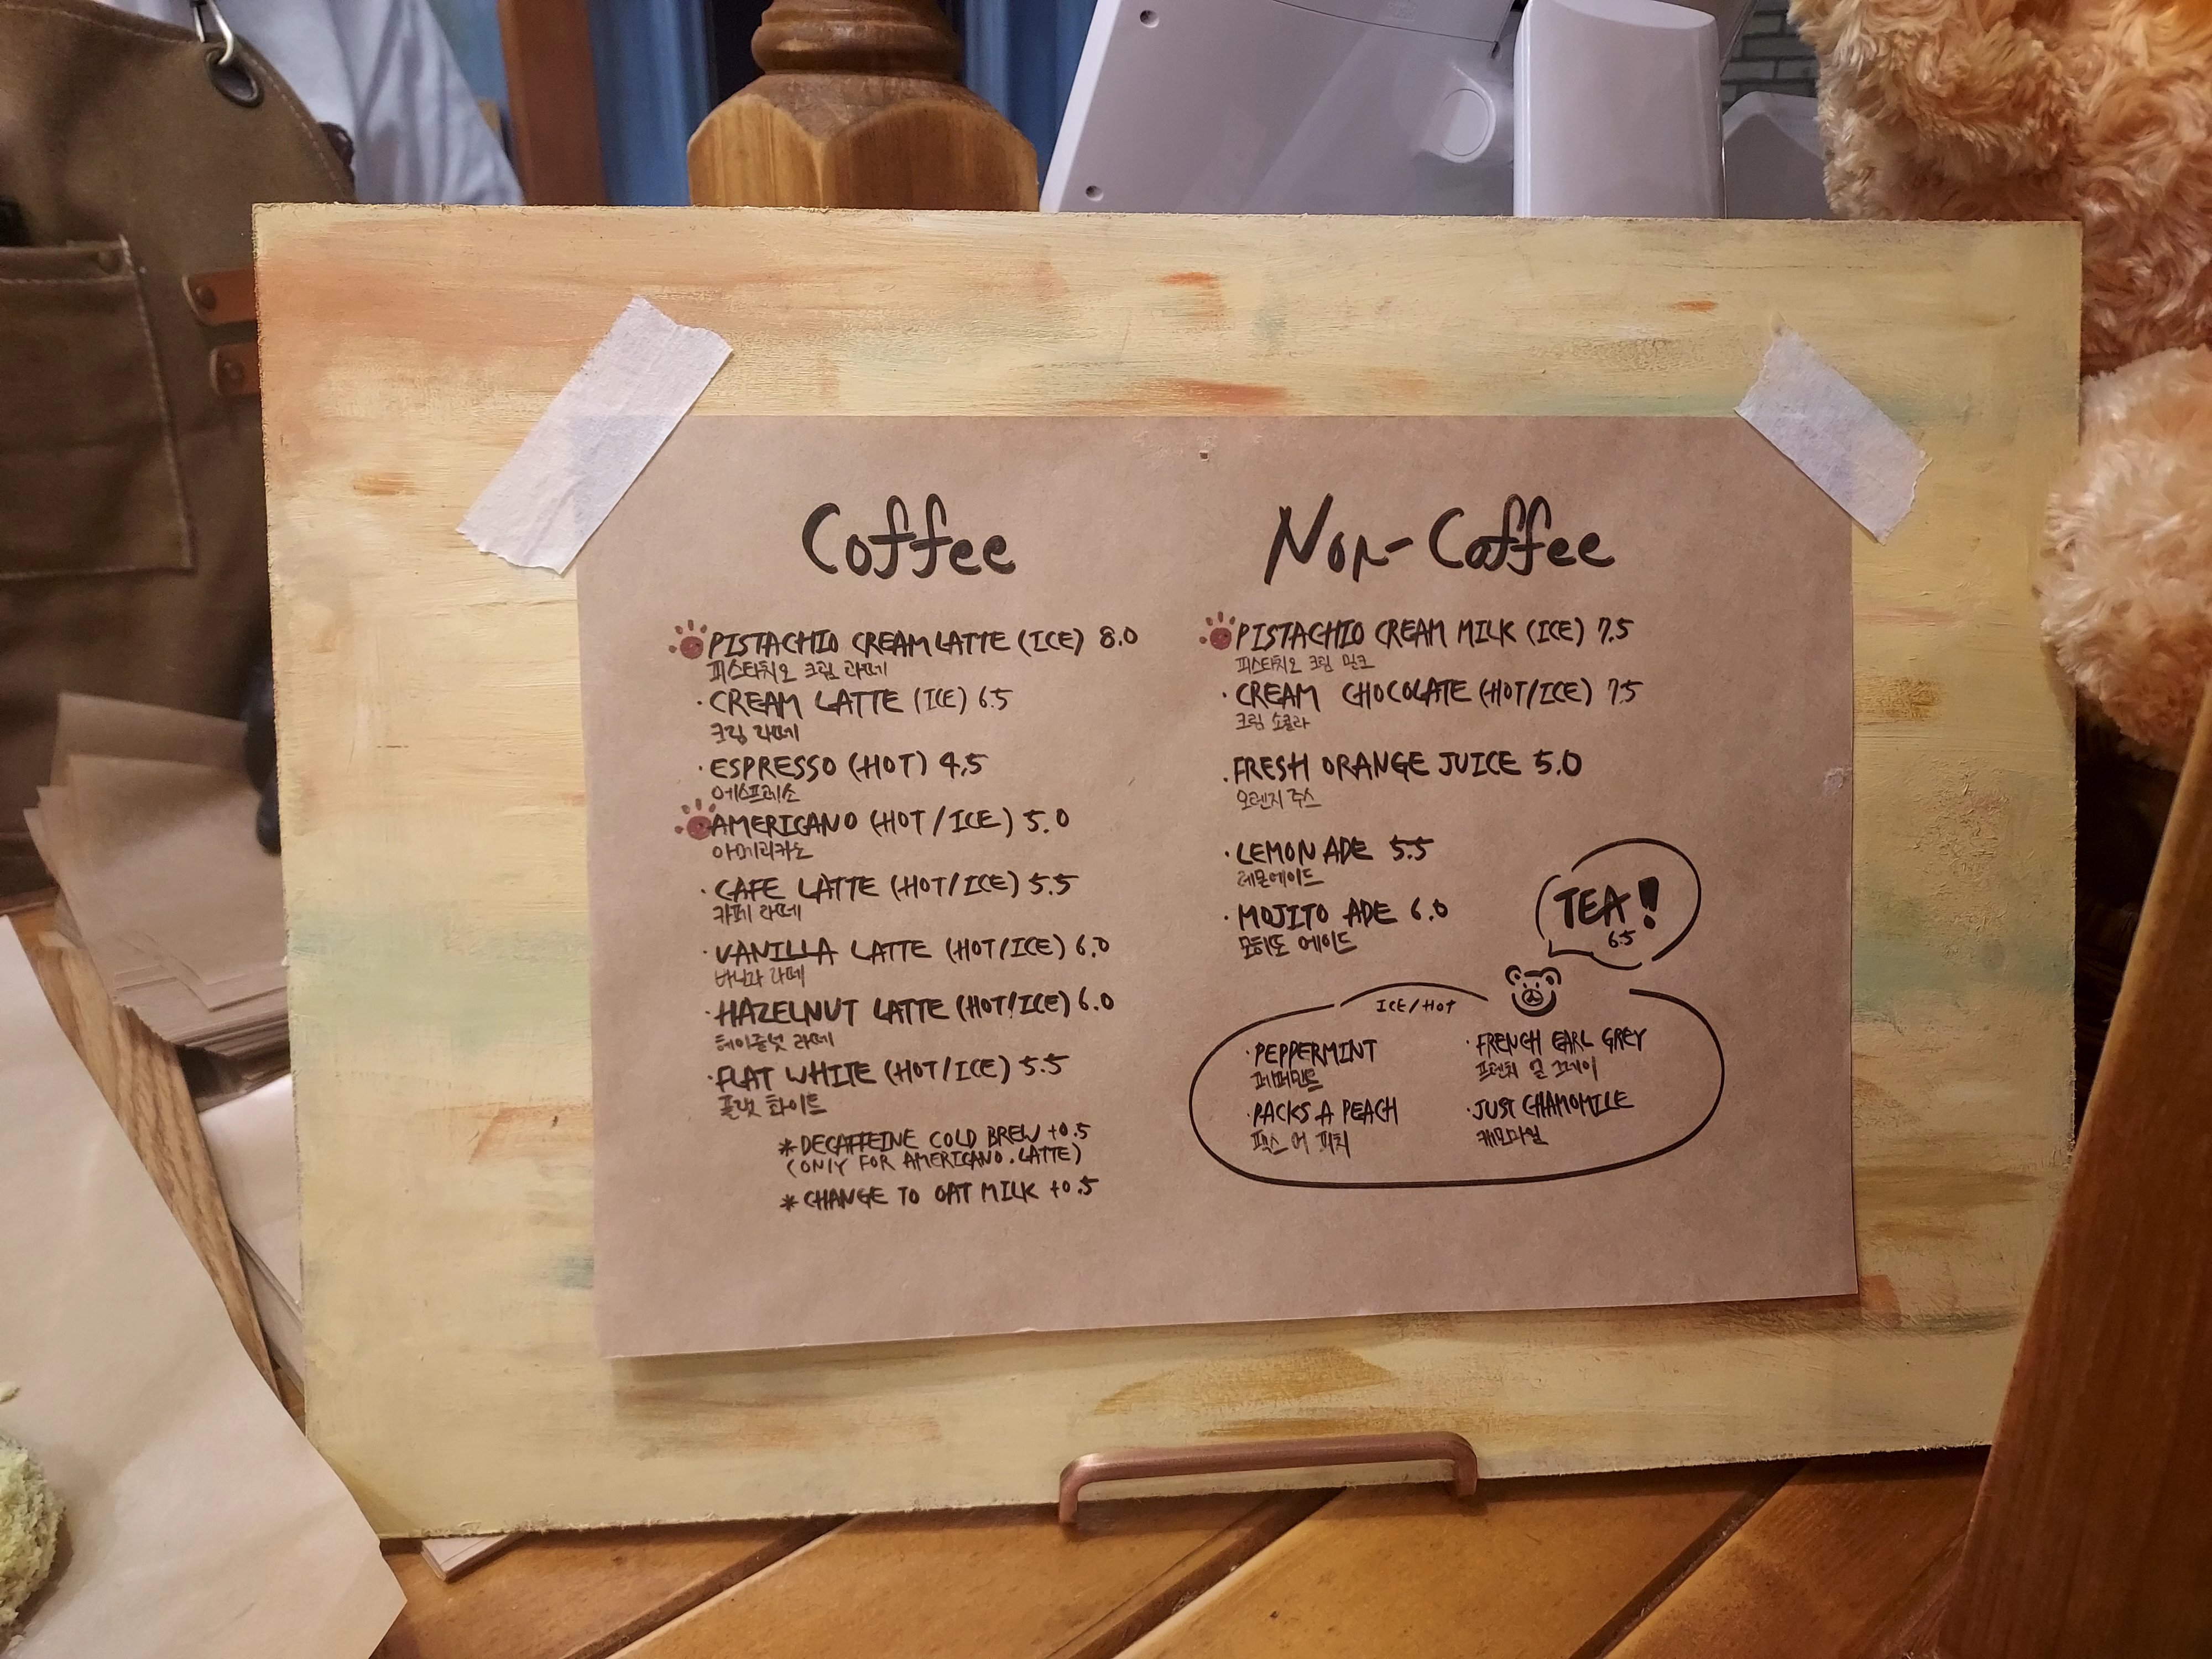 Coffee
PISTACHIO CREAM LATTE (ICE) 8.0
피스타치오 크림 라떼
· CREAM LATTE (ICE) 6.5
크림 라떼
· ESPRESSO (HOT) 4.5
에스프레소
AMERICANO (HOT / ICE) 5.0
아메리카노
· CAFE LATTE (HOT/ICE) 5.5
카페 라떼
· VANILLA LATTE (HOT/ICE) 6.0
바닐라 라떼
· HAZELNUT LATTE (HOT/ICE) 6.0
헤이즐넛 라떼
· FLAT WHITE (HOT/ICE) 5.5
플랫 화이트
* DECAFFEINE COLD BREW +0.5
(ONLY FOR AMERICANO. LATTE)
* CHANGE TO OAT MILK +0.5
Non-Coffee
PISTACHIO CREAM MILK (ICE) 7.5
피스타치오 크림 밀크
· CREAM CHOCOLATE (HOT/ICE) 7.5
크림 쇼콜라
· FRESH ORANGE JUICE 5.0
오렌지 주스
· LEMON ADE 5.5
레몬에이드
· MOJITO ADE 6.0
모히또 에이드
TEA!
6.5
ICE/HOT
· PEPPERMINT
페퍼민트
· PACKS A PEACH
팩스 어 피치
· FRENCH EARL GREY
프렌치 얼 그레이
· JUST CHAMOMILE
캐모마일